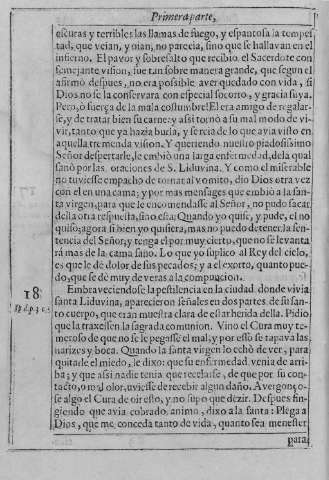 Primera parte,
escuras y terribles las llamas de fuego, y espantosa la tempes
tad, que veian, y oian, no parecia, sino que se hallavan en el
infierno. El pavor y sobresalto que recibio, el Sacerdote con
semejante vision, fue tan sobre manera grande, que segun el
afirmó despues, no era possible aver quedado con vida, si
Dios no se la conservara con especial socorro, y gracia suya.
Pero, ò fuerça de la mala costumbre! El era amigo de regalar-
se, y de tratar bien su carne: y assi tornò a su mal modo de vi-
vir, tanto que ya hazia burla, y se reia de lo que avia visto en
aquella tremenda vision. Y queriendo nuestro piadosissimo
Señor despertarle, le embiò una larga enfermedad, de la qual
sanò por las oraciones de S. Liduvina. Y como el miserable
no tuviesse empacho de tornar al vomito, dio Dios otra vez
con el en una cama; y por mas mensages que embiò a la san-
ta virgen, para que le encomendasse al Señor, no pudo sacar
della otra respuesta, sino esta: Quando yo quise, y pude, el no
quiso; agora si bien yo quisiera, mas no puedo detener la sen-
tencia del Señor; y tenga el por muy cierto, que no se levanta
rá mas de la cama sano. Lo que yo suplico al Rey del cielo,
es que le dè dolor de sus pecados; y a el exorto, quanto pue-
do, que se dè muy de veras a la compuncion.
18 Embraveciendose la pestilencia en la ciudad donde vivia
santa Liduvina, aparecieron señales en dos partes de su san-
to cuerpo, que eran muestra clara de estar herida della. Pidio
que la traxessen la sagrada comunion. Vino el Cura muy te-
meroso de que no se le pegasse el mal, y por esso se tapava las
narizes y boca. Quando la santa virgen lo echò de ver, para
quitarle el miedo, le dixo: que su enfermedad venia de arri-
ba; y que assi nadie tenia que recelarse, de que por su con-
tacto, o mal olor, uviesse de recebir algun daño. Avergonço-
se algo el Cura de oir esto, y no supo que dezir. Despues fin-
giendo que avia cobrado animo, dixo a la santa: Plega a
Dios, que me conceda tanto de vida, quanto sea menester
para